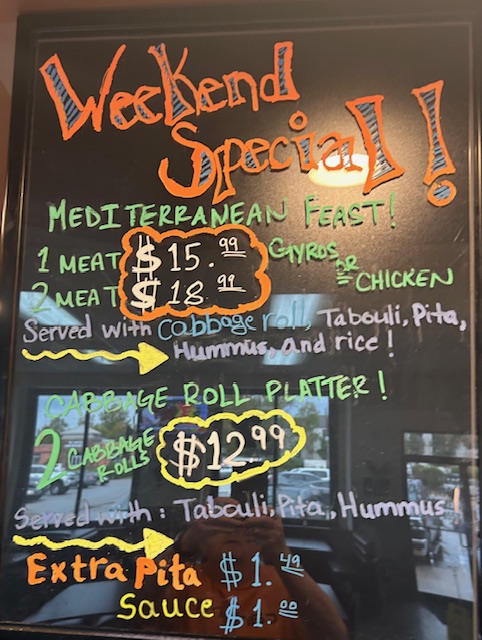 Weekend
Special!
MEDITERRANEAN FEAST!
1 MEAT $15.99 GYROS OR
2 MEAT $18.99 CHICKEN
Served with cabbage roll, Tabouli, Pita,
Hummus, and rice!
CABBAGE ROLL PLATTER!
2 CABBAGE ROLLS $12.99
Served with: Tabouli, Pita, Hummus!
Extra Pita $1.49
Sauce $1.00